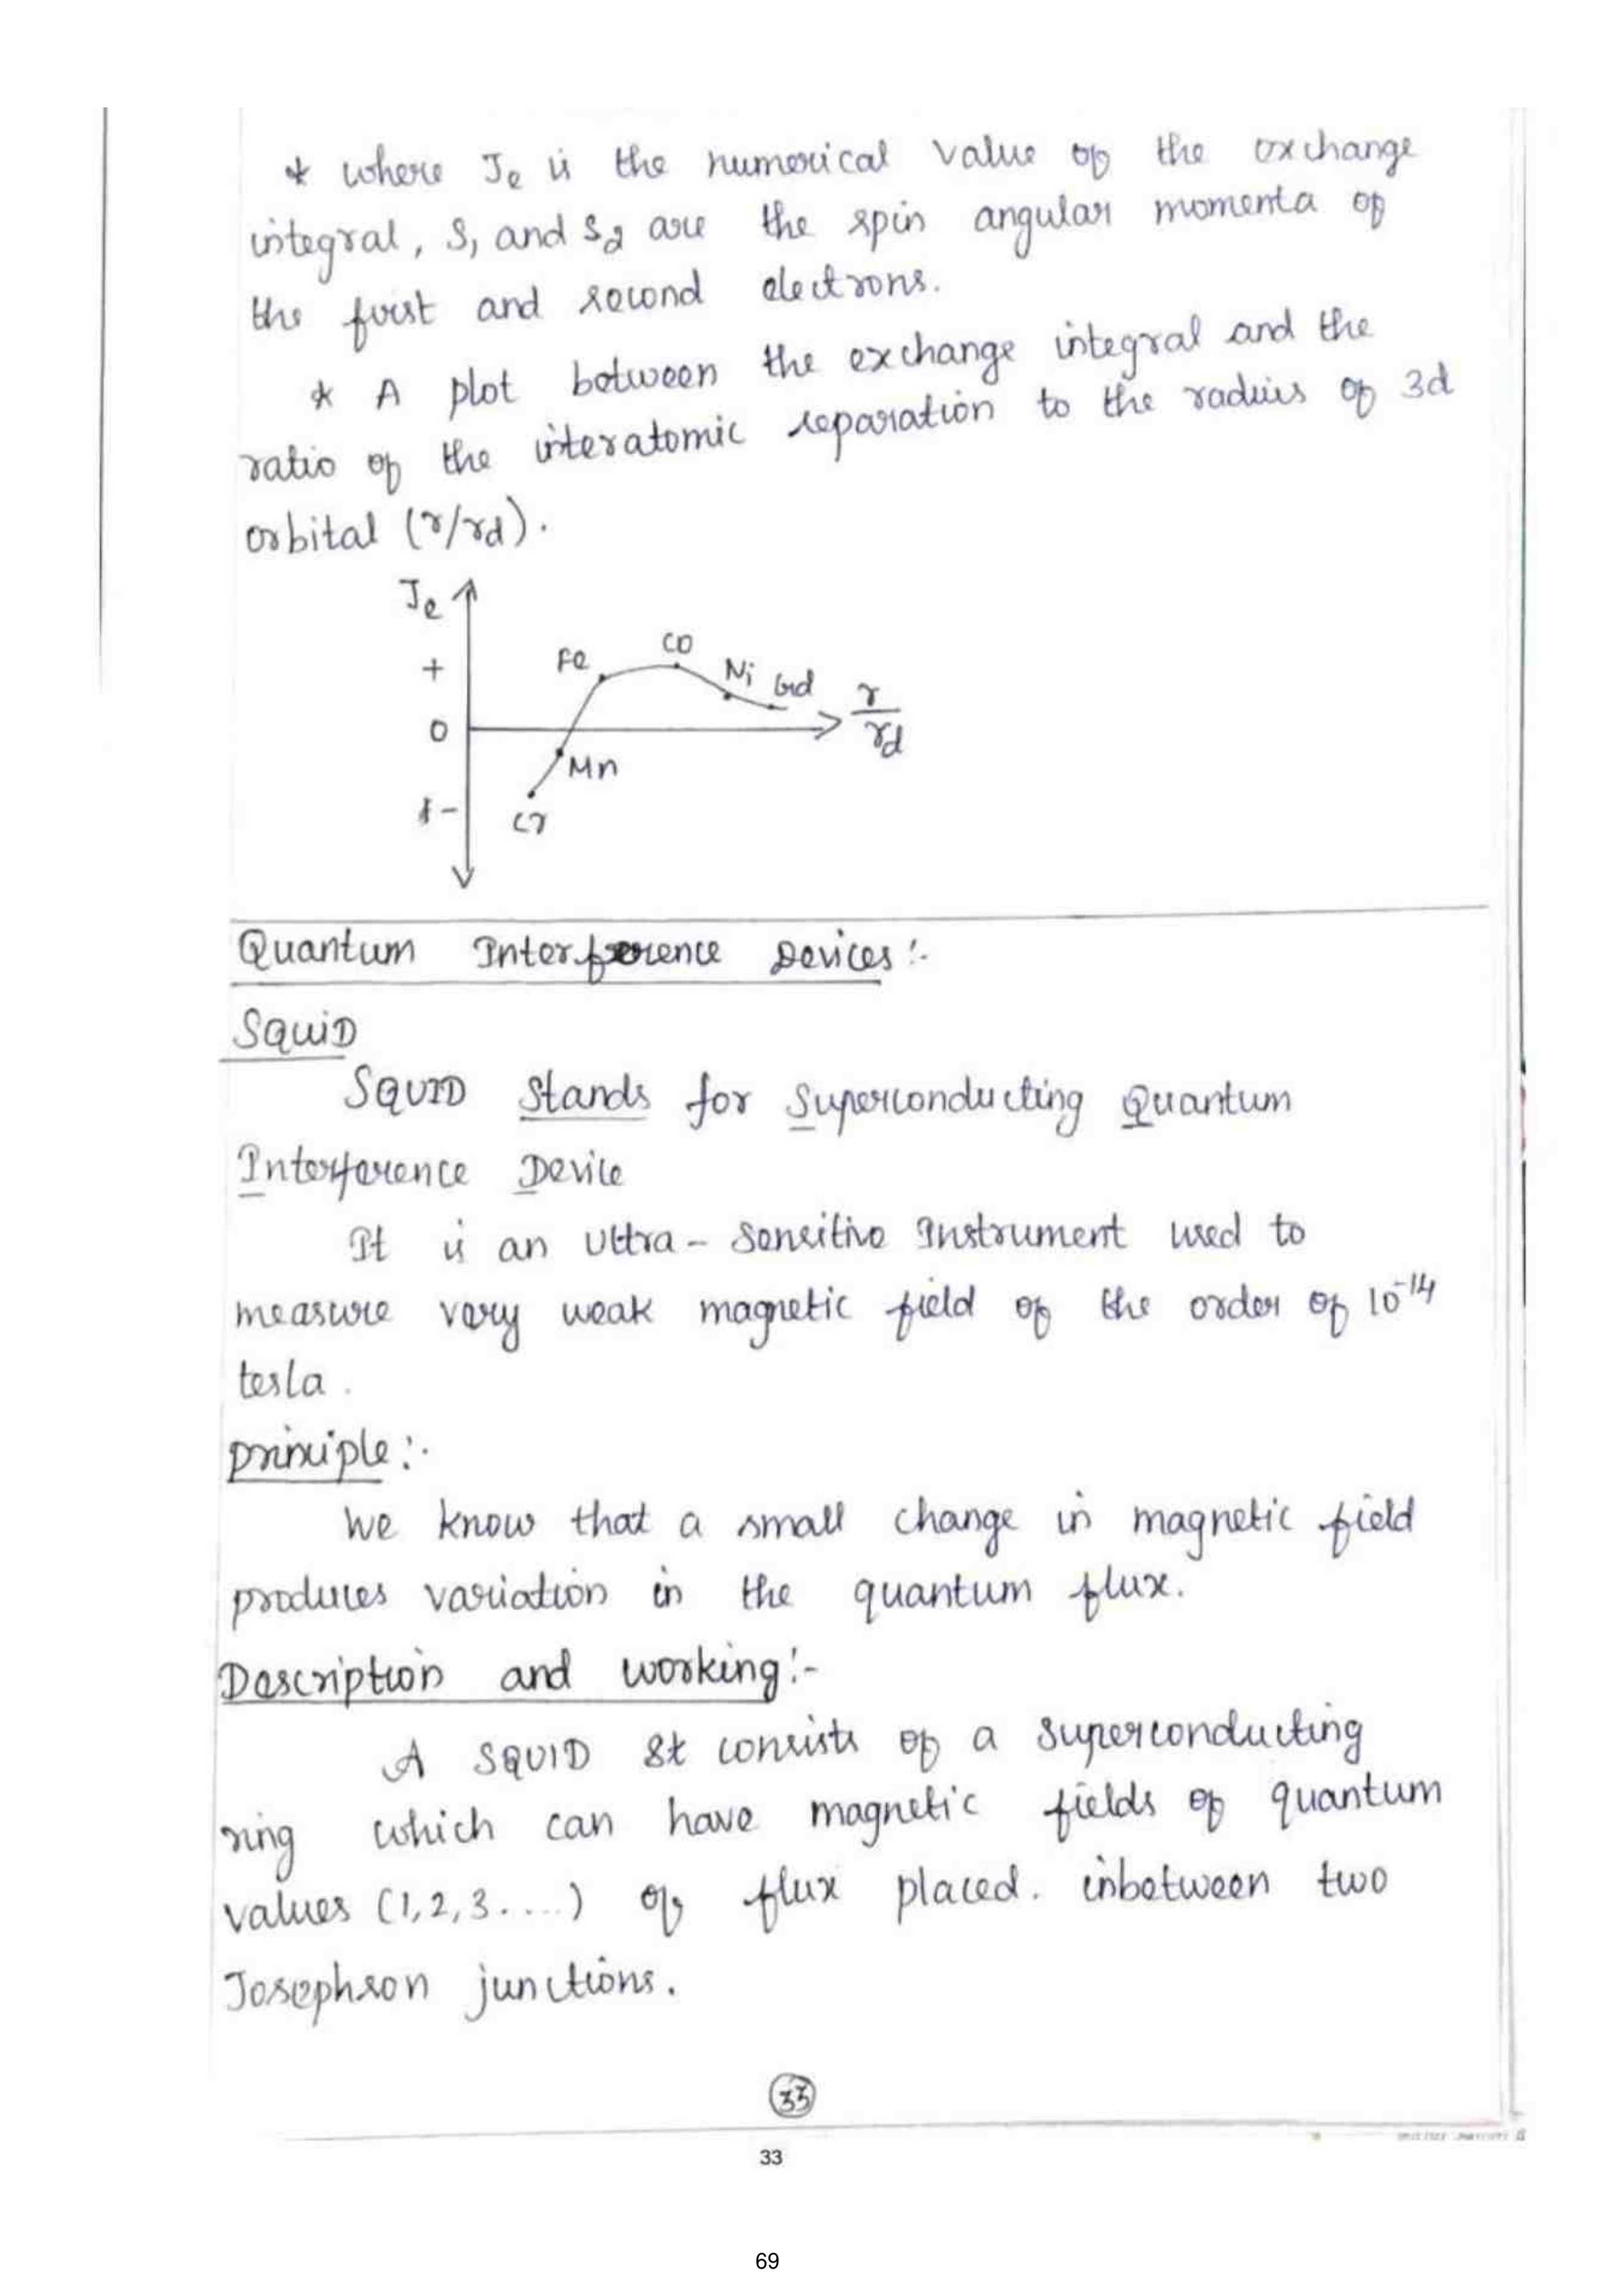 * where Je is the numerical value of the exchange
integral, S1 and S2 are the spin angular momenta of
the first and second electrons.
* A plot between the exchange integral and the
ratio of the interatomic separation to the radius of 3d
orbital (r/rd).
Je
+
0
-
Fe
CO
Ni
Gd
Mn
Cr
r/rd
Quantum Interference Devices:-
SQuiD
SQUID Stands for Superconducting Quantum
Interference Device
It is an Ultra-Sensitive Instrument used to
measure very weak magnetic field of the order of 10⁻¹⁴
tesla.
principle:-
We know that a small change in magnetic field
produces variation in the quantum flux.
Description and working:-
A SQUID It consists of a superconducting
ring which can have magnetic fields of quantum
values (1,2,3....) of flux placed. inbetween two
Josephson junctions.
33
33
69